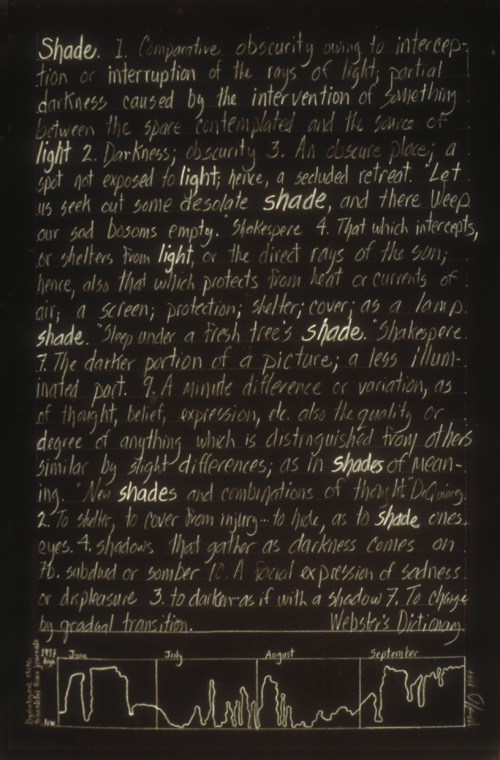 Shade. 1. Comparative obscurity owing to intercep-
tion or interruption of the rays of light; partial
darkness caused by the intervention of something
between the space contemplated and the source of
light 2. Darkness; obscurity 3. An obscure place; a
spot not exposed to light; hence, a secluded retreat. "Let
us seek out some desolate shade, and there weep
our sad bosoms empty." Shakespere 4. That which intercepts,
or shelters from light, or the direct rays of the sun;
hence, also that which protects from heat or currents of
air; a screen; protection; shelter; cover; as a lamp
shade. "Sleep under a fresh tree's shade." Shakespere.
7. The darker portion of a picture; a less illum-
inated part. 9. A minute difference or variation, as
of thought, belief, expression, etc. also the quality or
degree of anything which is distinguished from others
similar by slight differences; as in shades of mean-
ing. "New shades and combinations of thought" De Quincey.
2. To shelter, to cover from injury... to hide, as to shade ones
eyes. 4. shadows that gather as darkness comes on
7b. subdued or somber 10. A facial expression of sadness
or displeasure 3. to darken as if with a shadow 7. To change
by gradual transition. Webster's Dictionary
June July August September
high
low